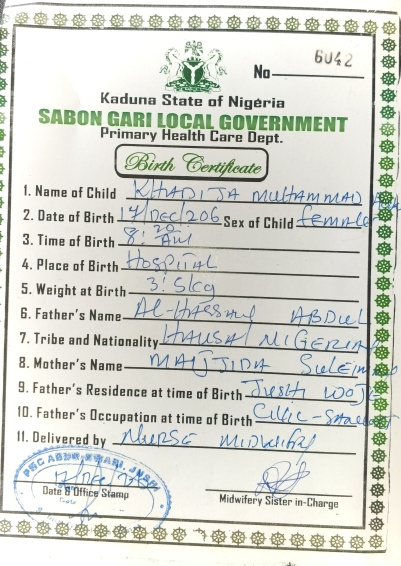 No 6042
Kaduna State of Nigeria
SABON GARI LOCAL GOVERNMENT
Primary Health Care Dept.
Birth Certificate
1. Name of Child KHADIJA MUHAMMAD
2. Date of Birth 17/Dec/206 Sex of Child female
3. Time of Birth 8:20 AM
4. Place of Birth HOSPITAL
5. Weight at Birth 3.5kg
6. Father's Name ABDUL
7. Tribe and Nationality HAUSA NIGERIA
8. Mother's Name
9. Father's Residence at time of Birth
10. Father's Occupation at time of Birth
11. Delivered by Nurse Midwifry
Date & Office Stamp
Midwifery Sister in-Charge